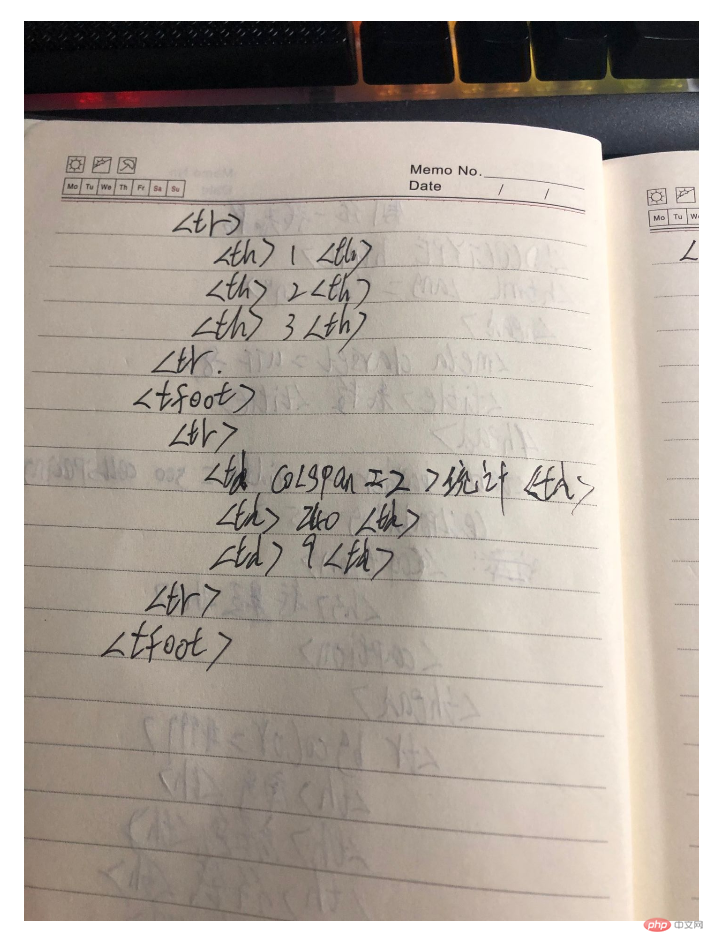 Memo No.
Date / /
Mo Tu We Th Fr Sa Su
<tr>
<th> 1 <th>
<th> 2 <th>
<th> 3 <th>
<tr.
<tfoot>
<tr>
<td colspan=2>统计<td>
<td> 240 <td>
<td> 9 <td>
<tr>
<tfoot>
Mo Tu We
<
php 中文网